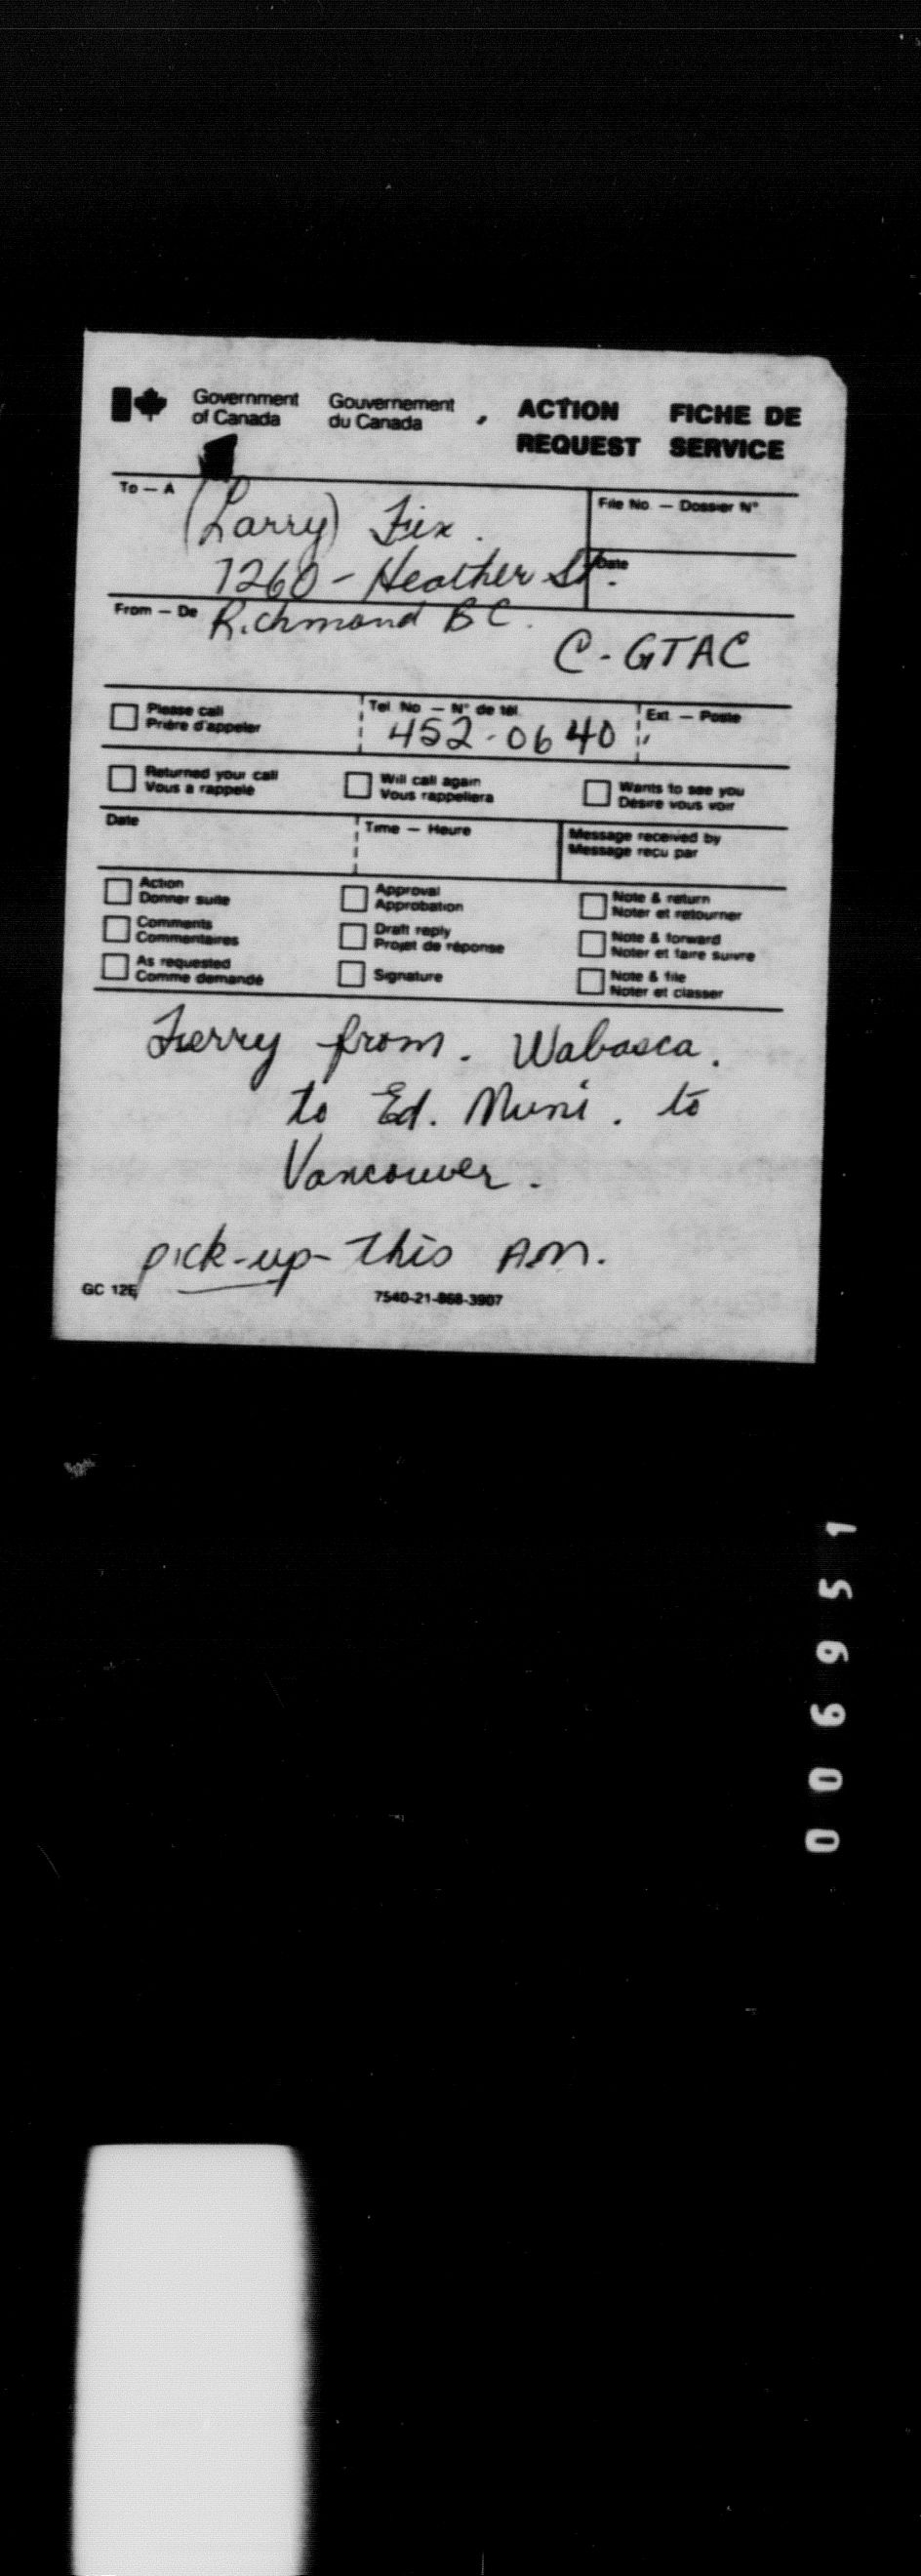 Government of Canada Gouvernement du Canada ACTION REQUEST FICHE DE SERVICE
To — A (Larry) Fix.
File No. — Dossier N°
7260 - Heather St.
Date
From — De Richmond BC.
C-GTAC
Please call
Prière d'appeler
Tel. No. — N° de tél.
452-0640
Ext. — Poste
Returned your call
Vous a rappelé
Will call again
Vous rappellera
Wants to see you
Désire vous voir
Date
Time — Heure
Message received by
Message reçu par
Action
Donner suite
Approval
Approbation
Note & return
Noter et retourner
Comments
Commentaires
Draft reply
Projet de réponse
Note & forward
Noter et faire suivre
As requested
Comme demandé
Signature
Note & file
Noter et classer
Ferry from. Wabasca.
to Ed. Muni. to
Vancouver.
pick-up- this AM.
GC 12E
7540-21-868-3907
006951